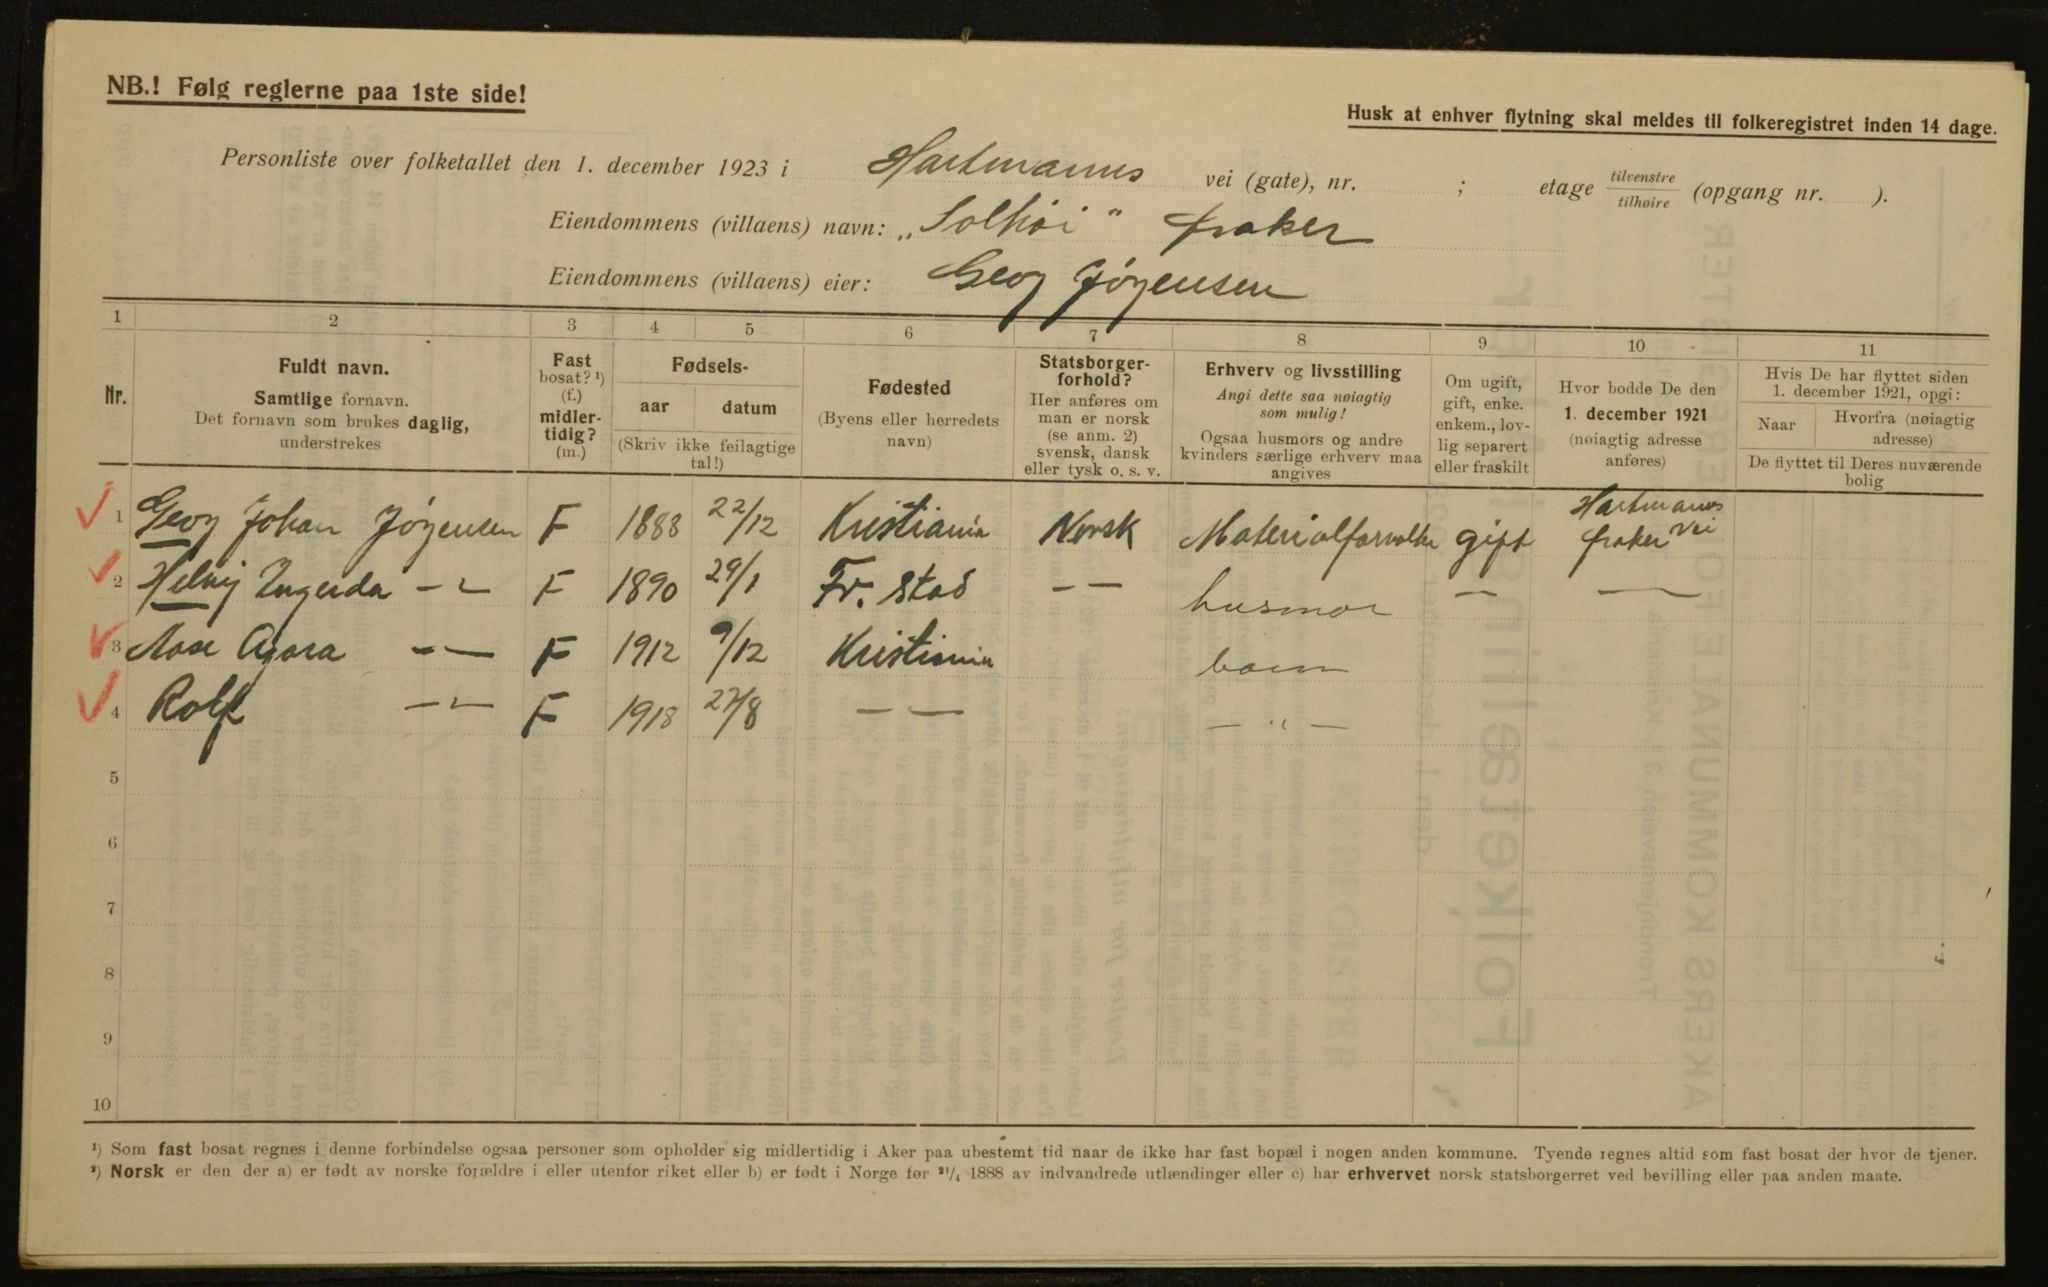 NB.! Følg reglerne paa 1ste side!
Husk at enhver flytning skal meldes til folkeregistret inden 14 dage.
Personliste over folketallet den 1. december 1923 i Hartmanns vei (gate), nr. ; etage tilvenstre/tilhøire (opgang nr. ).
Eiendommens (villaens) navn: „Solhøi"
Eiendommens (villaens) eier: Georg Jørgensen
1 2 3 4 5 6 7 8 9 10 11
Nr.
Fuldt navn.
Samtlige fornavn.
Det fornavn som brukes daglig,
understrekes
Fast
bosat? ¹)
(f.)
midler-
tidig?
(m.)
Fødsels-
aar datum
(Skriv ikke feilagtige
tal!)
Fødested
(Byens eller herredets
navn)
Statsborger-
forhold?
Her anføres om
man er norsk
(se anm. 2)
svensk, dansk
eller tysk o. s. v.
Erhverv og livsstilling
Angi dette saa nøiagtig
som mulig!
Ogsaa husmors og andre
kvinders særlige erhverv maa
angives
Om ugift,
gift, enke.
enkem., lov-
lig separert
eller fraskilt
Hvor bodde De den
1. december 1921
(nøiagtig adresse
anføres)
Hvis De har flyttet siden
1. december 1921, opgi:
Naar Hvorfra (nøiagtig
adresse)
De flyttet til Deres nuværende
bolig
1 Georg Johan Jørgensen F 1888 22/12 Kristiania Norsk Materialforvalter gift Hartmanns vei
2 Ingerda — " — F 1890 29/1 Fr. stad — — husmor — —
3 Aase — — F 1912 9/12 Kristiania barn
4 Rolf — " — F 1918 27/8 — — — " —
5
6
7
8
9
10
¹) Som fast bosat regnes i denne forbindelse ogsaa personer som opholder sig midlertidig i Aker paa ubestemt tid naar de ikke har fast bopæl i nogen anden kommune. Tyende regnes altid som fast bosat der hvor de tjener.
²) Norsk er den der a) er født av norske forældre i eller utenfor riket eller b) er født i Norge før ²¹/₄ 1888 av indvandrede utlændinger eller c) har erhvervet norsk statsborgerret ved bevilling eller paa anden maate.